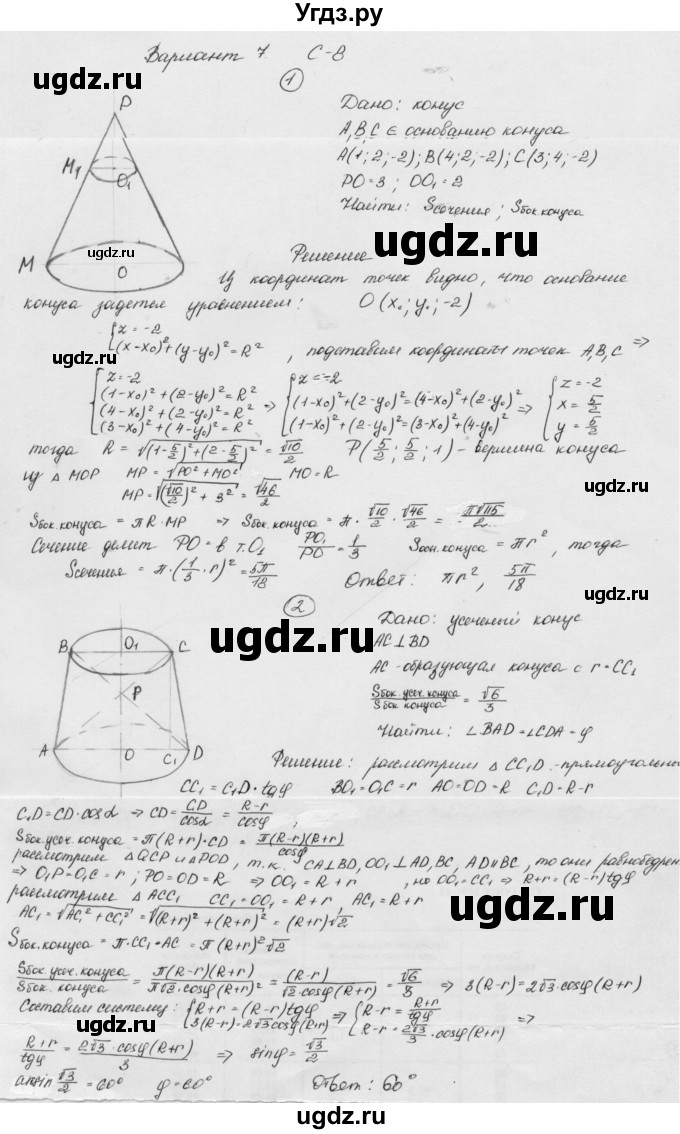 Угдз.ру
Вариант 7 С-8
ugdz.ru
ugdz.ru
1
P
Дано: конус
A, B, C ∈ основанию конуса
A(1; 2; -2); B(4; 2; -2); C(3; 4; -2)
M₁ O₁
PO = 3; OO₁ = 2
Найти: Sсечения; Sбок.конуса
ugdz.ru
ugdz.ru
M O
Решение
Из координат точек видно, что основание
конуса задется уравнением: O(x₀; y₀; -2)
{z = -2
(x-x₀)² + (y-y₀)² = R², подставим координаты точек A, B, C ⇒
{z = -2
(1-x₀)² + (2-y₀)² = R²
(4-x₀)² + (2-y₀)² = R²
(3-x₀)² + (4-y₀)² = R² ⇒ {z = -2
(1-x₀)² + (2-y₀)² = (4-x₀)² + (2-y₀)²
(1-x₀)² + (2-y₀)² = (3-x₀)² + (4-y₀)² ⇒ {z = -2
x = 5/2
y = 5/2
тогда R = √((1-5/2)² + (2-5/2)²) = √10/2 P(5/2; 5/2; 1) - вершина конуса
из △MOP MP = √(PO² + MO²) MO = R
MP = √((√10/2)² + 3²) = √46/2
Sбок.конуса = πR·MP ⇒ Sбок.конуса = π·√10/2·√46/2 = π√115/2
Сечение делит PO = в т.O₁ PO₁/PO = 1/3 Sосн.конуса = πr², тогда
Sсечения = π·(1/3·r)² = 5π/18 Ответ: πr², 5π/18
ugdz.ru
2
ugdz.ru
B O₁ C
Дано: усеченый конус
AC ⊥ BD
AC - образующая конуса с r = CC₁
Sбок.усеч.конуса/Sбок.конуса = √6/3
P
Найти: ∠BAD = ∠CDA = φ
A O C₁ D
Решение: рассмотрим △CC₁D - прямоугольн
CC₁ = C₁D·tgφ BO₁ = O₁C = r AO = OD = R C₁D = R-r
C₁D = CD·cosα ⇒ CD = CD/cosα = R-r/cosφ;
Sбок.усеч.конуса = π(R+r)·CD = π(R-r)(R+r)/cosφ
рассмотрим △O₁CP и △POD, т.к. CA⊥BD, OO₁⊥AD, BC, AD∥BC, то они равнобедрен
⇒ O₁P = O₁C = r; PO = OD = R ⇒ OO₁ = R+r, но OO₁ = CC₁ ⇒ R+r = (R-r)tgφ
рассмотрим △ACC₁ CC₁ = OO₁ = R+r, AC₁ = R+r
AC₁ = √(AC₁² + CC₁²) = √((R+r)² + (R+r)²) = (R+r)√2
ugdz.ru
Sбок.конуса = π·CC₁·AC = π(R+r)²√2
Sбок.усеч.конуса/Sбок.конуса = π(R-r)(R+r)/π√2·cosφ(R+r)² = (R-r)/√2·cosφ(R+r) = √6/3 ⇒ 3(R-r) = 2√3·cosφ(R+r)
Составим систему: {R+r = (R-r)tgφ
3(R-r) = 2√3cosφ(R+r) ⇒ {R-r = R+r/tgφ
R-r = 2√3/3·cosφ(R+r) ⇒
R+r/tgφ = 2√3·cosφ(R+r)/3 ⇒ sinφ = √3/2
arcsin √3/2 = 60° φ = 60° Ответ: 60°
ugdz.ru
ugdz.ru
ugdz.ru